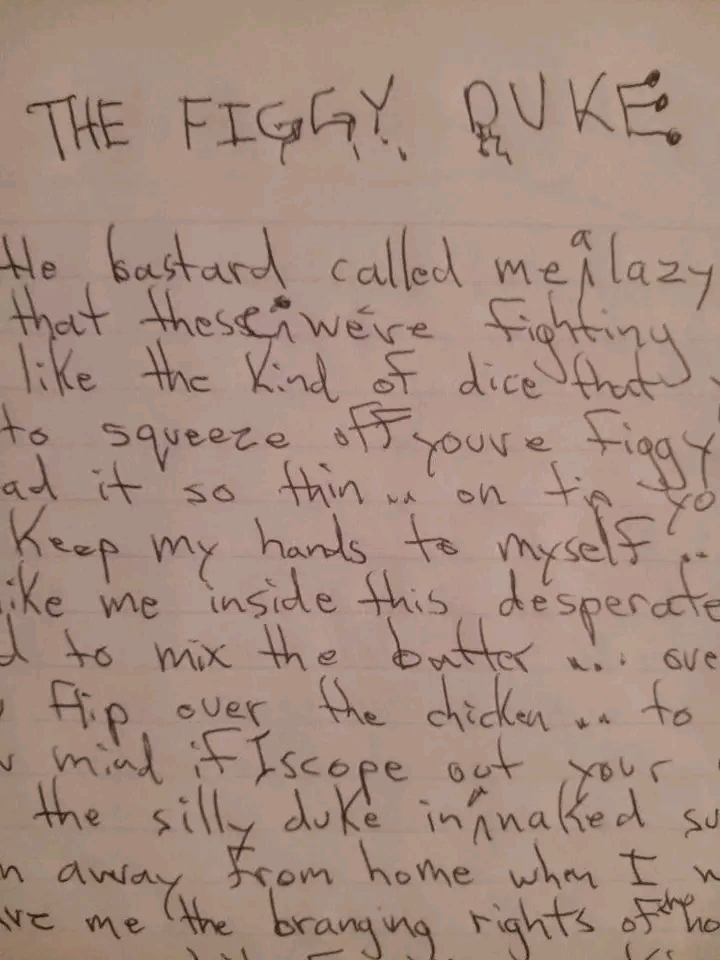 THE FIGGY DUKE
He bastard called me a lazy
that these were fighting
like the kind of dice that
to squeeze off youre figgy
ad it so thin .. on tip yo
Keep my hands to myself ..
ike me inside this desperate
d to mix the batter .... ove
flip over the chicken .. to
mind if I scope out your
the silly duke in naked su
n away from home when I w
ave me the branging rights of the ho